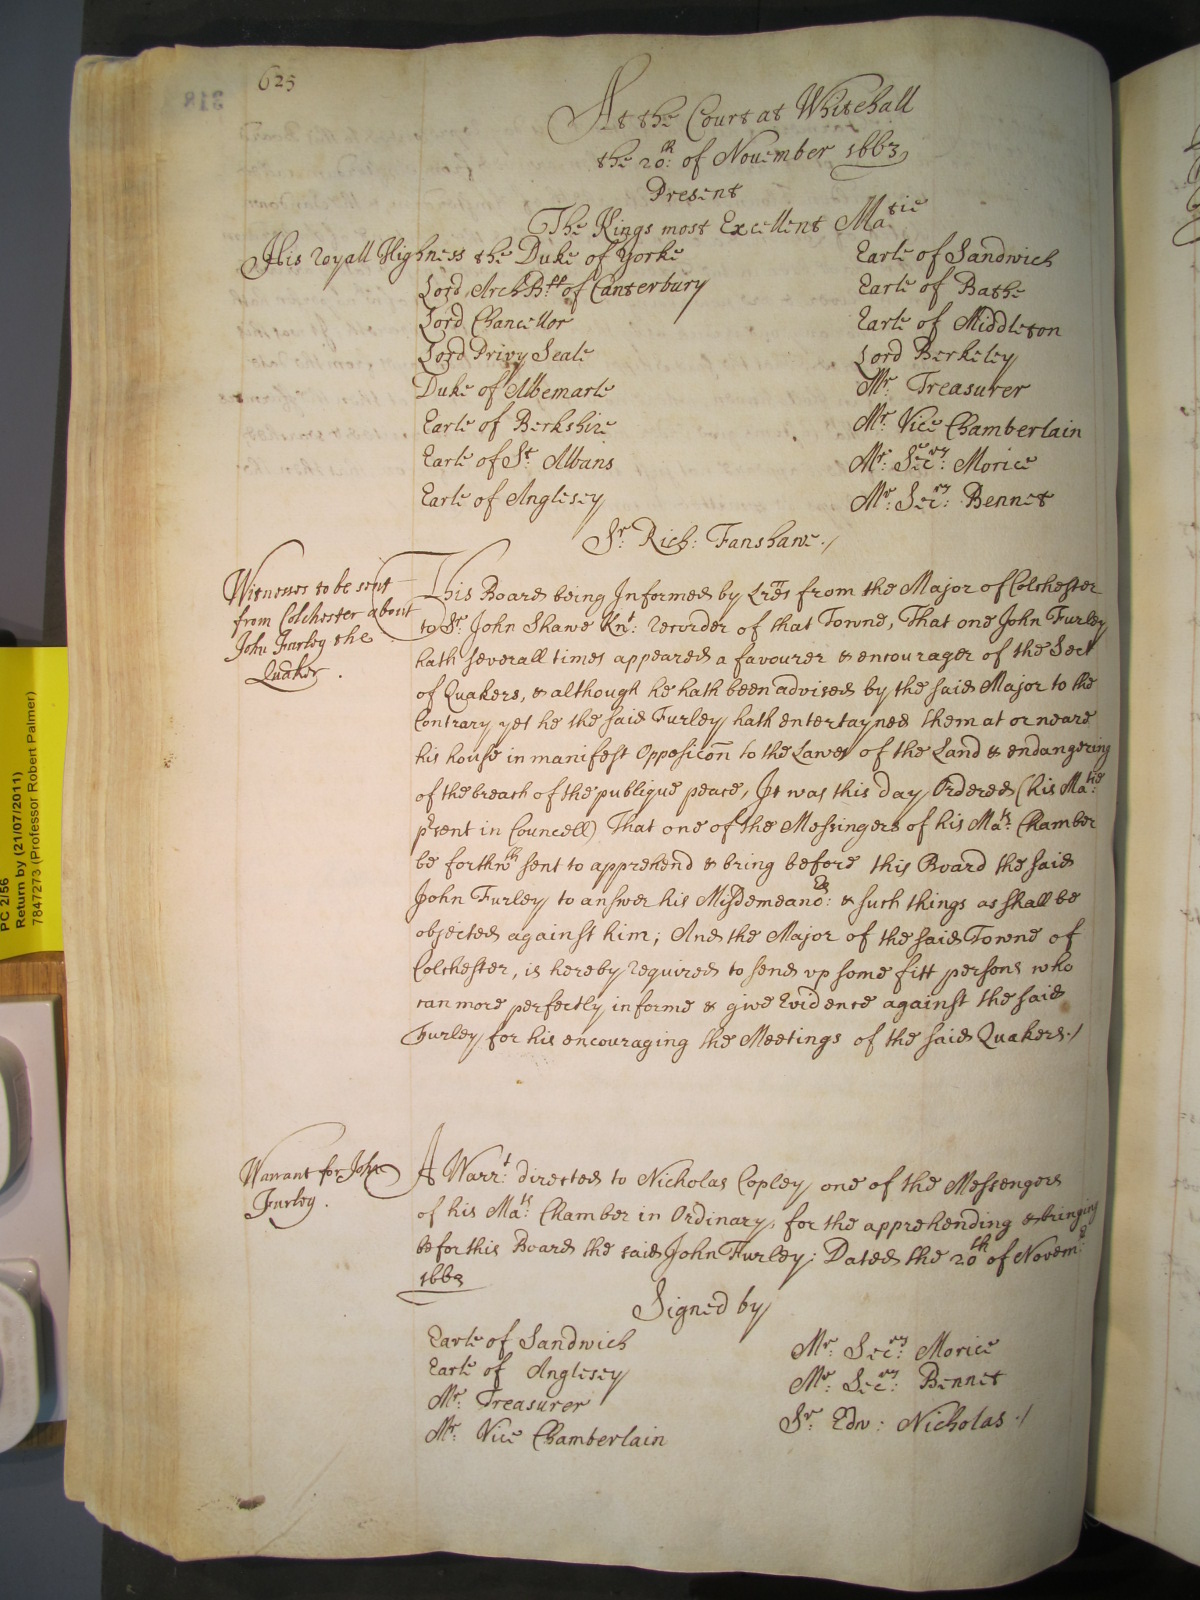 625
318
At the Court at Whitehall
the 20th: of November 1663
Present
The Kings most Excellent Ma:tie
His royall Highness the Duke of Yorke
Lord ArchBpp of Canterbury
Lord Chancellor
Lord Privy Seale
Duke of Albemarle
Earle of Berkshire
Earle of St: Albans
Earle of Anglesey
Earle of Sandwich
Earle of Bathe
Earle of Middleton
Lord Berkeley
Mr: Treasurer
Mr: Vice Chamberlain
Mr: Secry: Morice
Mr: Secry: Bennet
Sr: Rich: Fanshawe./
Witnesses to be sent
from Colchester about
John Furley the
Quaker.
This Board being Informed by Lres from the Major of Colchester
to Sr: John Shawe Knt: recorder of that Towne, That one John Furley
hath severall times appeared a favourer & encourager of the Sect
of Quakers, & although he hath been advised by the said Major to the
Contrary yet he the said Furley hath entertayned them at or neare
his house in manifest Opposicon to the Lawes of the Land & endangering
of the breach of the publique peace, It was this day Ordered (his Ma:tie
prsent in Councell) That one of the Messingers of his Ma:ts Chamber
be forthwth sent to apprehend & bring before this Board the said
John Furley to answer his Misdemeano:rs & such things as shall be
objected against him; And the Major of the said Towne of
Colchester, is hereby required to send vp some fitt persons who
can more perfectly informe & give Evidence against the said
Furley for his encouraging the Meetings of the said Quakers./
Warrant for John
Furley.
A Warrt: directed to Nicholas Copley one of the Messengers
of his Ma:ts Chamber in Ordinary, for the apprehending & bringing
before this Board the said John Furley; Dated the 20th of Novem:r
1663
Signed by
Earle of Sandwich
Earle of Anglesey
Mr: Treasurer
Mr: Vice Chamberlain
Mr: Secry: Morice
Mr: Secry: Bennet
Sr: Edw: Nicholas./
PC 2/56
Return by (21/07/2011)
7847273 (Professor Robert Palmer)